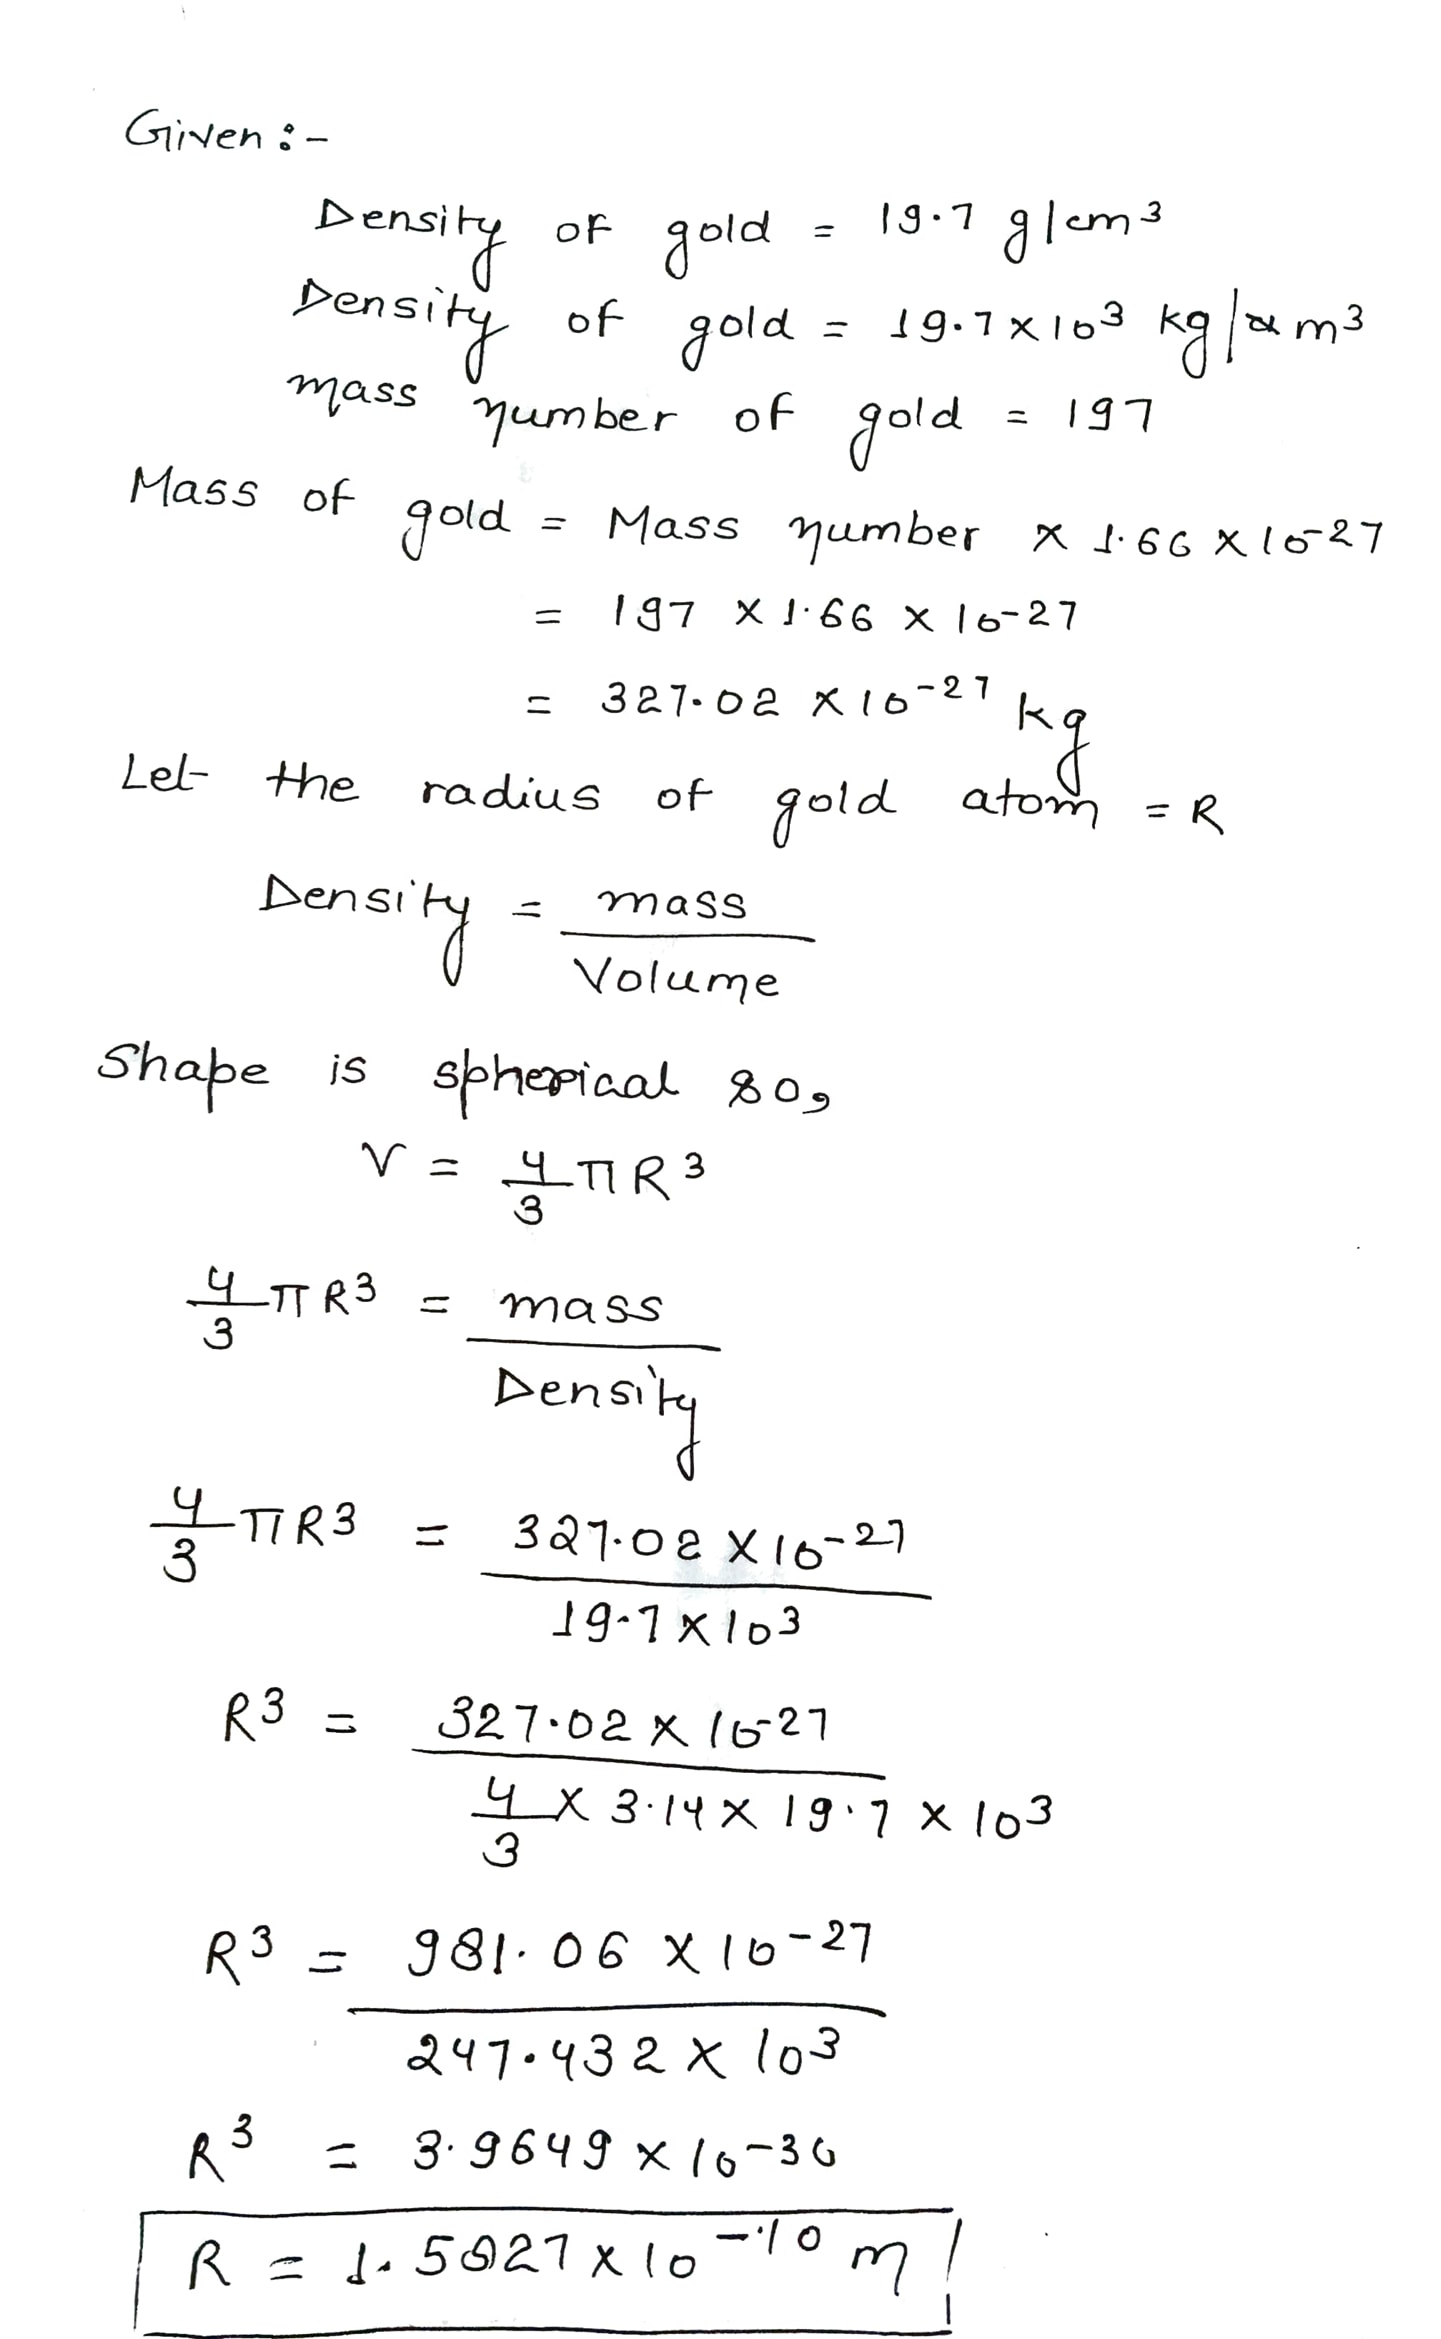 Given :-
Density of gold = 19.7 g/cm³
Density of gold = 19.7 × 10³ kg/ m³
mass number of gold = 197
Mass of gold = Mass number × 1.66 × 10⁻²⁷
= 197 × 1.66 × 10⁻²⁷
= 327.02 × 10⁻²⁷ kg
Let the radius of gold atom = R
Density = mass
Volume
Shape is spherical so,
V = 4/3 π R³
4/3 π R³ = mass
Density
4/3 π R³ = 327.02 × 10⁻²⁷
19.7 × 10³
R³ = 327.02 × 10⁻²⁷
4/3 × 3.14 × 19.7 × 10³
R³ = 981.06 × 10⁻²⁷
247.432 × 10³
R³ = 3.9649 × 10⁻³⁰
R = 1.5827 × 10⁻¹⁰ m